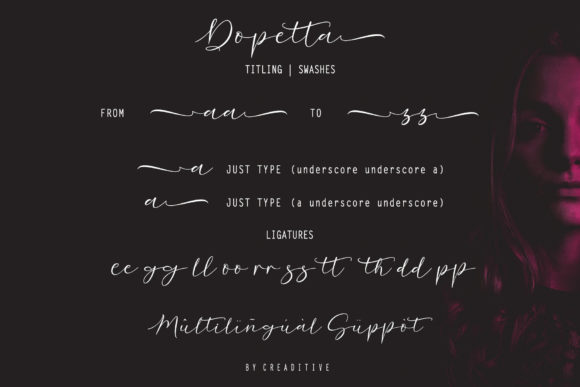 Dopetta
TITLING | SWASHES
FROM aa TO zz
a JUST TYPE (underscore underscore a)
a JUST TYPE (a underscore underscore)
LIGATURES
ee gg ll oo rr ss tt th dd pp
Mültilïñgúál Süppöt
BY CREADITIVE